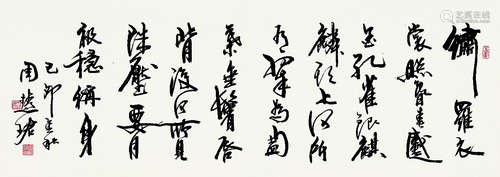 繡羅衣
裳照暮春蹙
金孔雀銀麒
麟頭上何所
有翠為㔩
葉垂鬢唇
背後何所見
珠壓腰
衱穩稱身
己卯
周慧珺